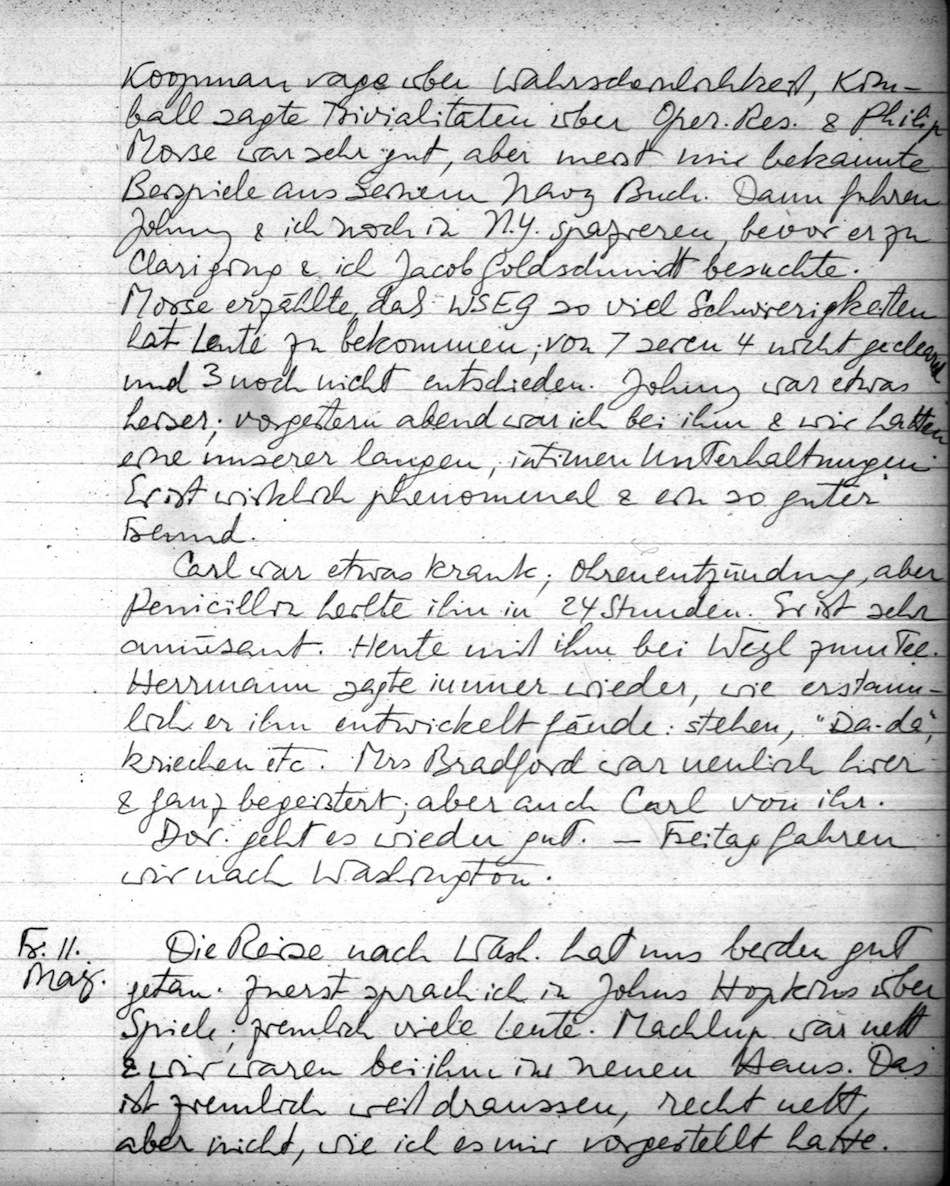 Koopman vage über Wahrscheinlichkeit, Kim-
ball sagte Trivialitäten über Oper. Res. & Philip
Morse war sehr gut, aber meist mir bekannte
Beispiele aus seinem Navy Buch. Dann fuhren
Johnny & ich noch in N.Y. spazieren, bevor er zu
Clari ging & ich Jacob Goldschmidt besuchte.
Morse erzählte, daß WSEG so viel Schwierigkeiten
hat Leute zu bekommen; von 7 seien 4 nicht gecleared
und 3 noch nicht entschieden. Johnny war etwas
heiser; vorgestern abend war ich bei ihm & wir hatten
eine unserer langen, intimen Unterhaltungen.
Er ist wirklich phenomenal & ein so guter
Freund.
Carl war etwas krank; Ohrenentzündung, aber
Penicillin heilte ihn in 24 Stunden. Er ist sehr
amüsant. Heute mit ihm bei Weyl zum Tee.
Herrmann sagte immer wieder, wie erstaun-
lich er ihn entwickelt fände: stehen, "Da-da",
kriechen etc. Mrs Bradford war neulich hier
& ganz begeistert; aber auch Carl von ihr.
Dor. geht es wieder gut. — Freitag fahren
wir nach Washington.
Fr. 11.
May.
Die Reise nach Wash. hat uns beiden gut
getan. Zuerst sprach ich in Johns Hopkins über
Spiele; ziemlich viele Leute. Machlup war nett
& wir waren bei ihm im neuen Haus. Das
ist ziemlich weit draussen, recht nett,
aber nicht, wie ich es mir vorgestellt hatte.